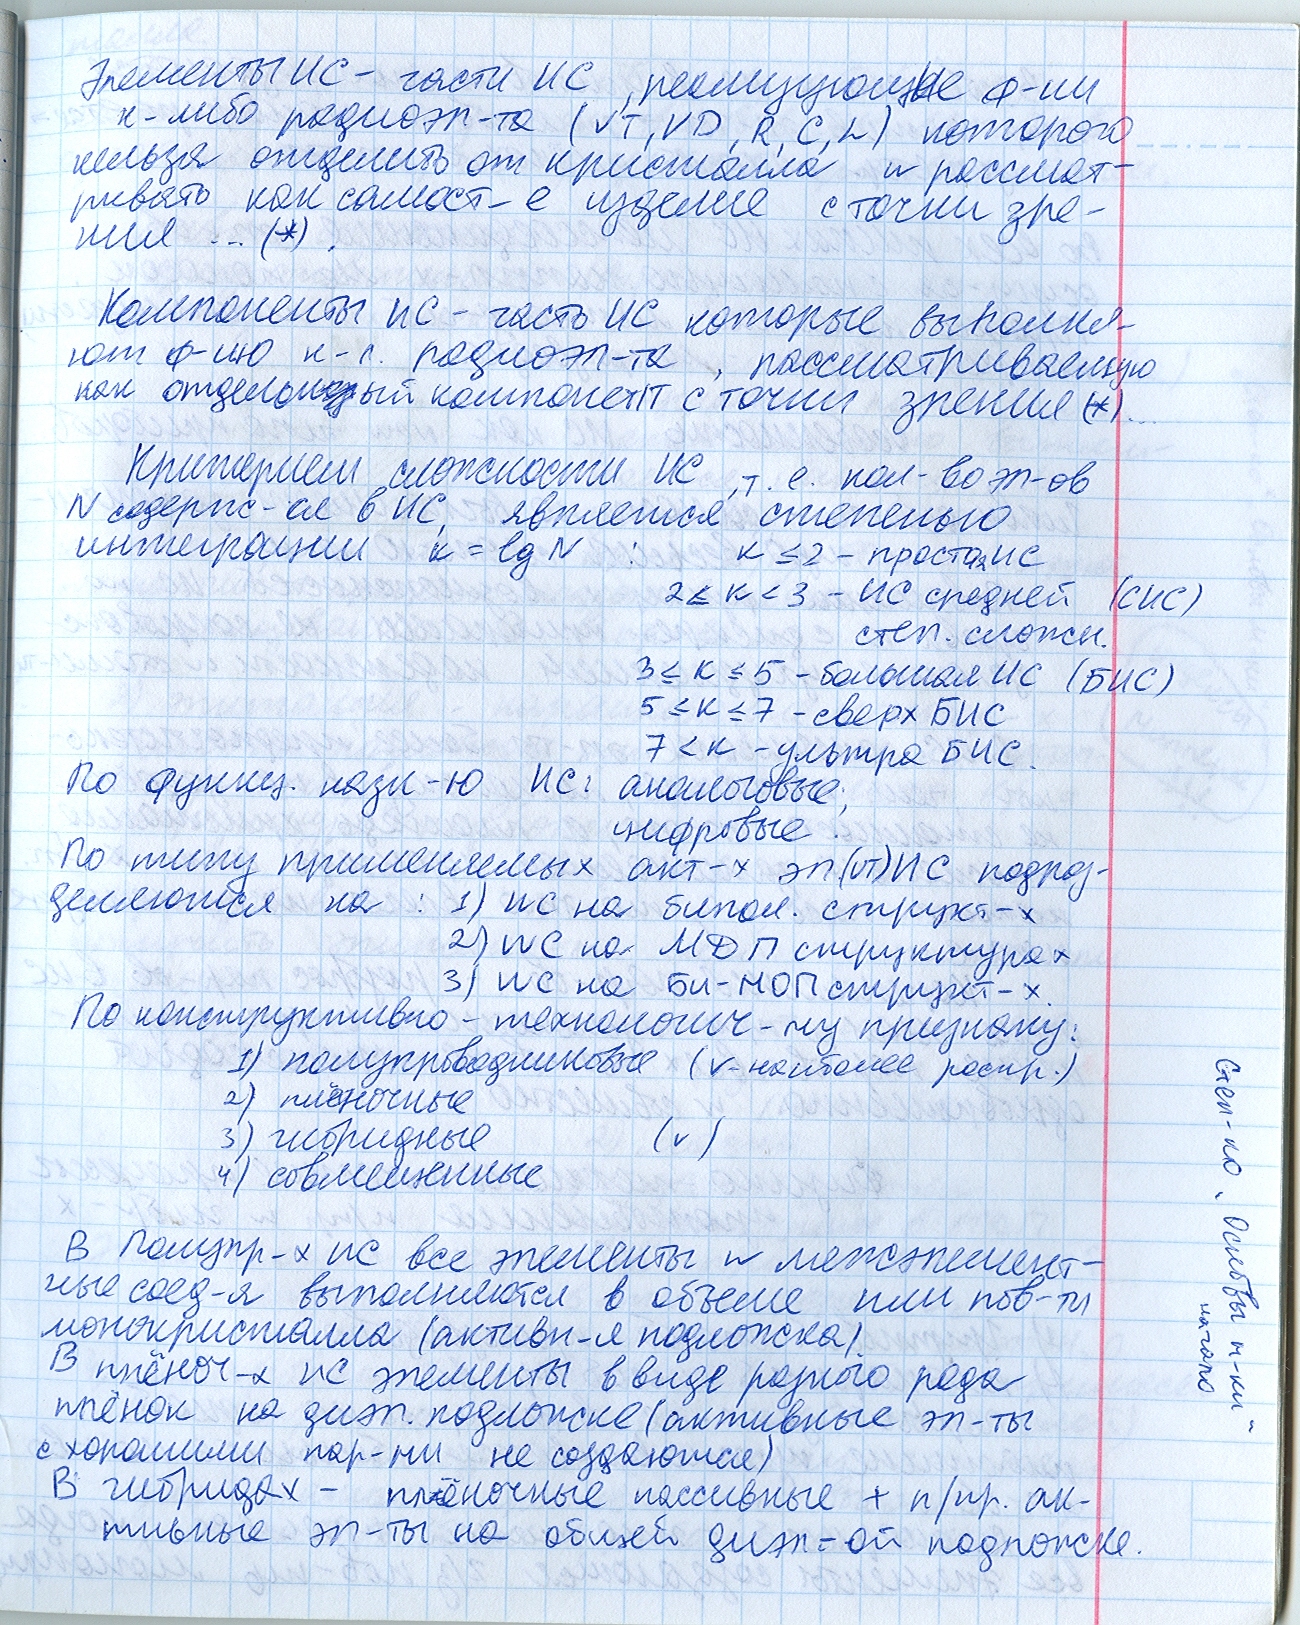 Элементы ИС – части ИС, реализующие ф-ии
к-либо радиоэл-та (VT, VD, R, C, L) которого
нельзя отделить от кристалла и рассмат-
ривать как самост-е изделие с точки зре-
ния ... (*).
Компоненты ИС – часть ИС которые выполня-
ют ф-ию к-л. радиоэл-та, рассматриваемую
как отдельный компонент с точки зрения (*)...
Критерием сложности ИС, т.е. кол-во эл-ов
N содерж-ся в ИС, является степенью
интеграции к = lg N : к ≤ 2 – простая ИС
2 ≤ к < 3 – ИС средней (СИС)
степ. сложн.
3 ≤ к ≤ 5 – большая ИС (БИС)
5 ≤ к ≤ 7 – сверх БИС
7 < к – ультра БИС.
По функц. назн-ю ИС: аналоговые;
цифровые.
По типу применяемых акт-х эл (VT) ИС подраз-
деляются на: 1) ИС на бипол. структ-х
2) ИС на МДП структурах
3) ИС на Би-МОП структ-х.
По конструктивно-технологич-му признаку:
1) полупроводниковые (v-наиболее распр.)
2) плёночные
3) гибридные (v)
4) совмещенные
В Полупр-х ИС все элементы и межэлемент-
ные соед-я выполняются в объеме или пов-ти
монокристалла (активн-я подложка).
В плёноч-х ИС элементы в виде разного рода
плёнок на диэл. подложке (активные эл-ты
с хорошими пар-ми не создаются)
В гибридах – плёночные пассивные + п/пр. ак-
тивные эл-ты на общей диэл-ой подложке.
Степ-ко "Основы м-ки"
начало